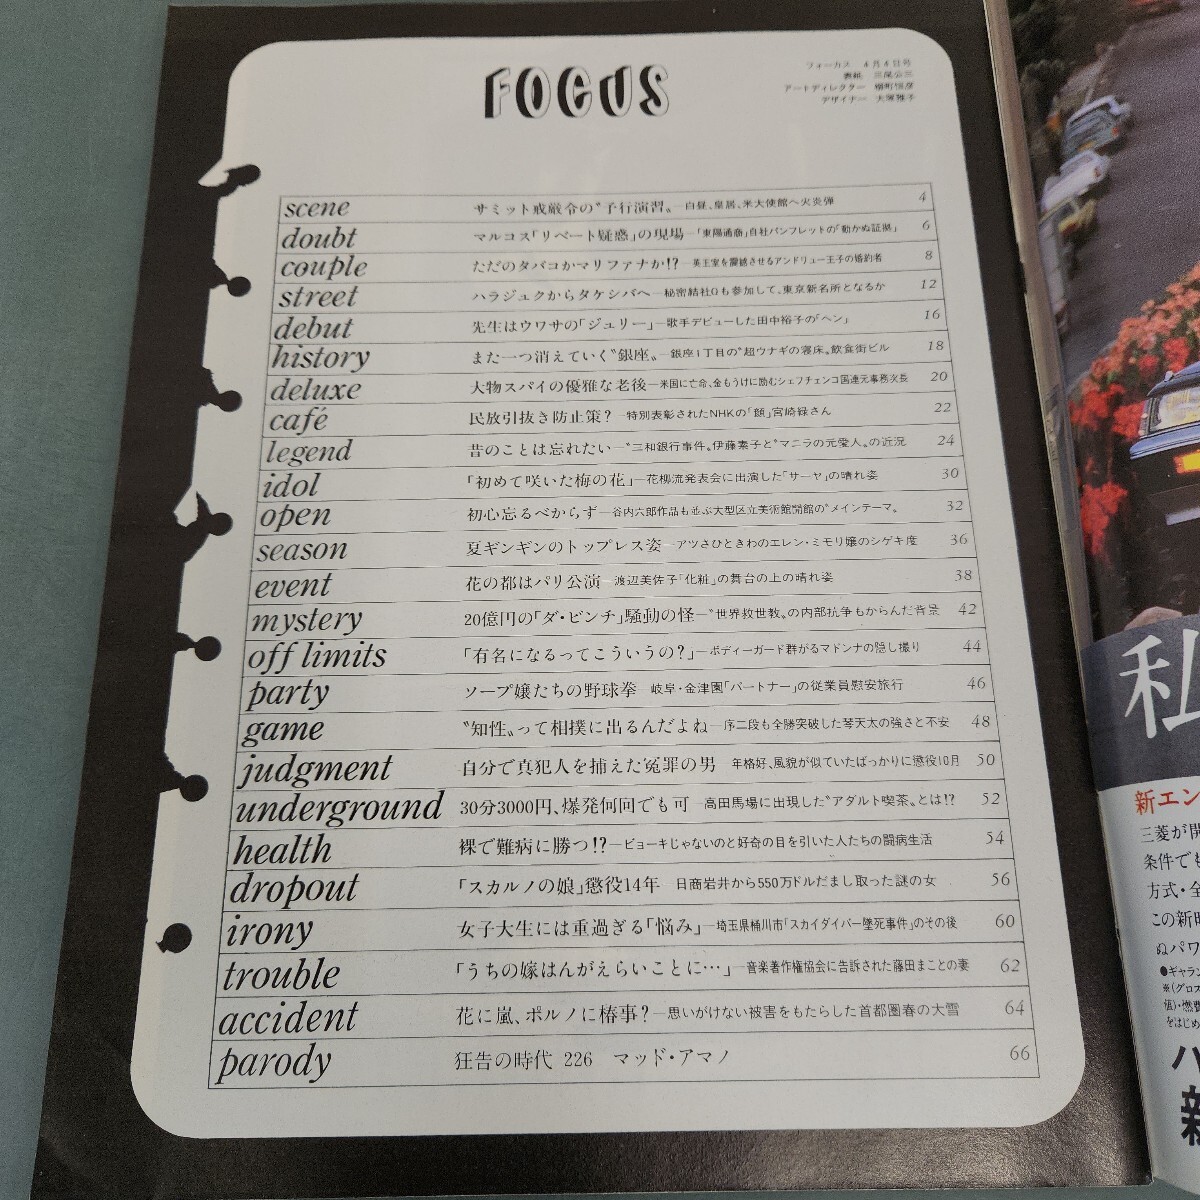 FOCUS
フォーカス 4月4日号
表紙 三尾公三
アートディレクター
デザイナー 大塚雅子
scene サミット戒厳令の〝予行演習〟―白昼、皇居、米大使館へ火炎弾 4
doubt マルコス「リベート疑惑」の現場―「東陽通商」自社パンフレットの「動かぬ証拠」 6
couple ただのタバコかマリファナか!?―英王室を震撼させるアンドリュー王子の婚約者 8
street ハラジュクからタケシバへ―秘密結社Qも参加して、東京新名所となるか 12
debut 先生はウワサの「ジュリー」―歌手デビューした田中裕子の「ヘン」 16
history また一つ消えていく〝銀座〟―銀座1丁目の〝超ウナギの寝床〟飲食街ビル 18
deluxe 大物スパイの優雅な老後―米国に亡命、金もうけに励むシェフチェンコ国連元事務次長 20
café 民放引抜き防止策?―特別表彰されたNHKの「顔」宮崎緑さん 22
legend 昔のことは忘れたい―〝三和銀行事件〟伊藤素子と〝マニラの元愛人〟の近況 24
idol 「初めて咲いた梅の花」―花柳流発表会に出演した「サーヤ」の晴れ姿 30
open 初心忘るべからず―谷内六郎作品も並ぶ大型区立美術館開館の〝メインテーマ〟 32
season 夏ギンギンのトップレス姿―アツさひときわのエレン・ミモリ嬢のシゲキ度 36
event 花の都はパリ公演―渡辺美佐子「化粧」の舞台の上の晴れ姿 38
mystery 20億円の「ダ・ビンチ」騒動の怪―〝世界救世教〟の内部抗争もからんだ背景 42
off limits 「有名になるってこういうの?」―ボディーガード群がるマドンナの隠し撮り 44
party ソープ嬢たちの野球拳 岐阜・金津園「パートナー」の従業員慰安旅行 46
game 〝知性〟って相撲に出るんだよね―序二段も全勝突破した琴天太の強さと不安 48
judgment 自分で真犯人を捕えた冤罪の男 年格好、風貌が似ていたばっかりに懲役10月 50
underground 30分3000円、爆発何回でも可―高田馬場に出現した〝アダルト喫茶〟とは!? 52
health 裸で難病に勝つ!?―ビョーキじゃないのと好奇の目を引いた人たちの闘病生活 54
dropout 「スカルノの娘」懲役14年 日商岩井から550万ドルだまし取った謎の女 56
irony 女子大生には重過ぎる「悩み」―埼玉県桶川市「スカイダイバー墜死事件」のその後 60
trouble 「うちの嫁はんがえらいことに…」―音楽著作権協会に告訴された藤田まことの妻 62
accident 花に嵐、ポルノに椿事?―思いがけない被害をもたらした首都圏春の大雪 64
parody 狂告の時代 226 マッド・アマノ 66
私
新エン
三菱が開
条件でも
方式・全
この新時
ぬパワ
●ギャラン
※(グロス
値)・燃費
をはじめ
ハ
新